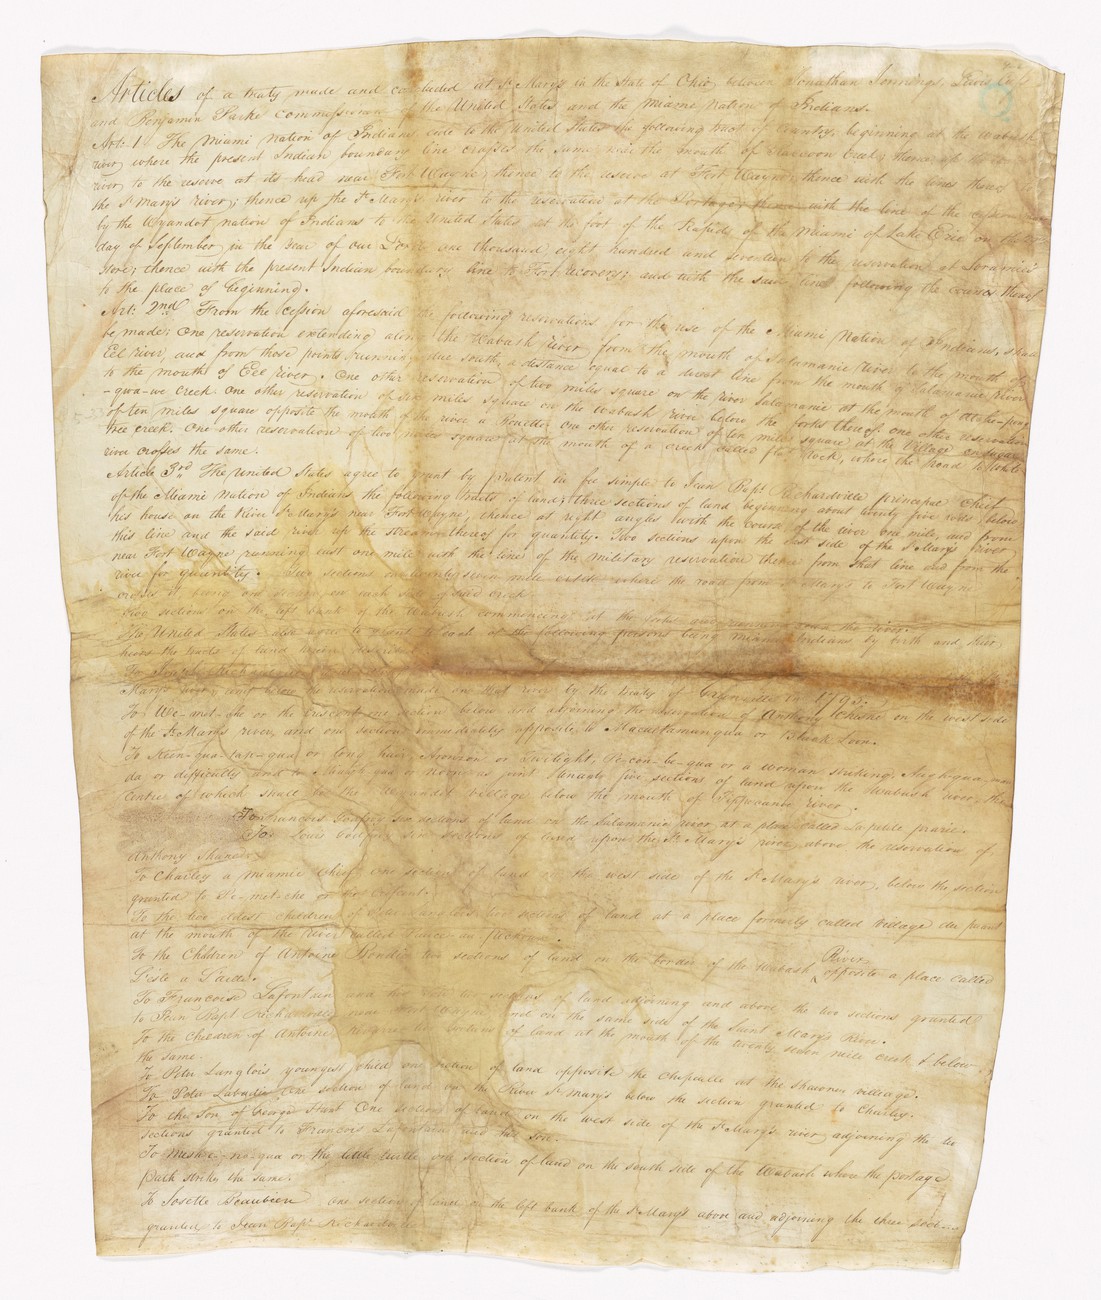 Articles of a treaty made and concluded at St. Mary's in the State of Ohio, between Jonathan Jennings, Lewis Cass
and Benjamin Parke commissioners of the United States and the Miami Nation of Indians.
Art: 1. The Miami Nation of Indians cede to the United States the following tract of Country, beginning at the Wabash
river where the present Indian boundary line crosses the same near the mouth of Raccoon Creek; thence up the Wabash
river to the reserve at its head near Fort Wayne; thence to the reserve at Fort Wayne; thence with the lines thereof to
the St. Mary's river; thence up the St. Mary's river to the reservation at the Portage; thence with the line of the cession made
by the Wyandot nation of Indians to the United States at the foot of the Rapids of the Miami of Lake Erie on the
day of September in the Year of our Lord one thousand eight hundred and seventeen to the reservation at Loramie's
Store; thence with the present Indian boundary line to Fort Recovery; and with the said line following the courses thereof
to the place of beginning.
Art: 2nd From the cession aforesaid the following reservations for the use of the Miami Nation of Indians, shall
be made; One reservation extending along the Wabash river from the mouth of Salamanie river to the mouth of
Eel river, and from those points running due south a distance equal to a direct line from the mouth of Salamanie river
to the mouth of Eel river. One other reservation of two miles square on the river Salamanie at the mouth of
-gwa-we Creek. One other reservation of six miles square on the Wabash river below the forks thereof. One other reservation
of ten miles square opposite the mouth of the river a Bouette. One other reservation of ten miles square at the Village on Sugar
tree creek. One other reservation of two miles square at the mouth of a creek called flat Rock, where the road to White
river crosses the same.
Article 3rd The United States agree to grant by patent in fee simple to Jean Bapt. Richardville principal Chief
of the Miami Nation of Indians the following tracts of land; three sections of land beginning about twenty five rods below
his house on the River St. Mary's near Fort Wayne; thence at right angles with the course of the river one mile, and from
this line and the said river up the stream thereof for quantity. Two sections upon the East side of the St. Mary's river
near Fort Wayne running east one mile with the line of the military reservation thence from that line and from the
river for quantity. Two sections on the twenty seven mile creek where the road from St. Mary's to Fort Wayne
crosses it being one section on each side of said creek
Two sections on the left bank of the Wabash commencing at the forks and running down the river.
The United States also agree to grant to each of the following persons being Miami Indians by birth and their
heirs the tracts of land herein described
To Joseph Richardville
Mary's river, next below the reservation made on that river by the treaty of Greenville in 1795.
To We-met-che or the Crescent one section below and adjoining the reservation of Anthony Chesne on the west side
of the St. Mary's river, and one section immediately opposite to Macultamunqua or Black Loon.
To Keen-qua-tak-qua or long hair, Aronzon or Twilight, Pe-con-be-qua or a woman striking, Augh-qua-mau-
da or difficulty and to Miagh-qua or noon as joint tenants five sections of land upon the Wabash river, the
centre of which shall be the Wyandot village below the mouth of Tippecanoe river.
To Francois Godfroy six sections of land on the Salamanie river at a place called Lapetite prarie.
To Louis Godfroy six sections of land upon the St. Mary's river, above the reservation of
Anthony Shane
To Charley a Miami Chief one section of land on the west side of the St. Mary's river, below the section
granted to Pe-met-che or the Crescent
To the two eldest children of Peter Langlois two sections of land at a place formerly called Village du puant
at the mouth of the river called Pauceau pichou.
To the Children of Antoine Bondie two sections of land on the border of the Wabash River opposite a place called
L'isle a L'aille.
To Francois Lafontain and his son two sections of land adjoining and above the two sections granted
to Jean Bapt. Richardville near Fort Wayne and on the same side of the Saint Mary's River.
To the Children of Antoine Rivarre two sections of land at the mouth of the twenty seven mile creek & below
the same.
To Peter Langlois youngest child one section of land opposite the Chipaille at the Shawnee village.
To Peter Labadie one section of land on the River St. Mary's below the section granted to Charley.
To the Son of George Hunt One section of land on the west side of the St. Mary's river adjoining the two
sections granted to Francois Lafontain and his son.
To Mesh-e-no-qua or the little turtle one section of land on the south side of the Wabash where the portage
path strikes the same.
To Josette Beaubien one section of land on the left bank of the St. Mary's above and adjoining the three sections
granted to Jean Bapt. Richardville